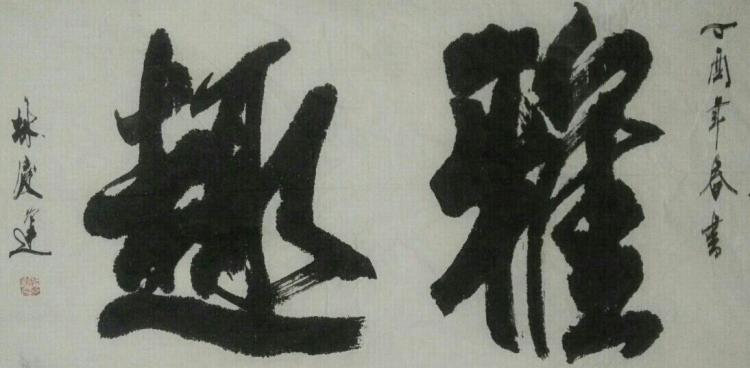 丁酉年春書
雅趣
林慶運